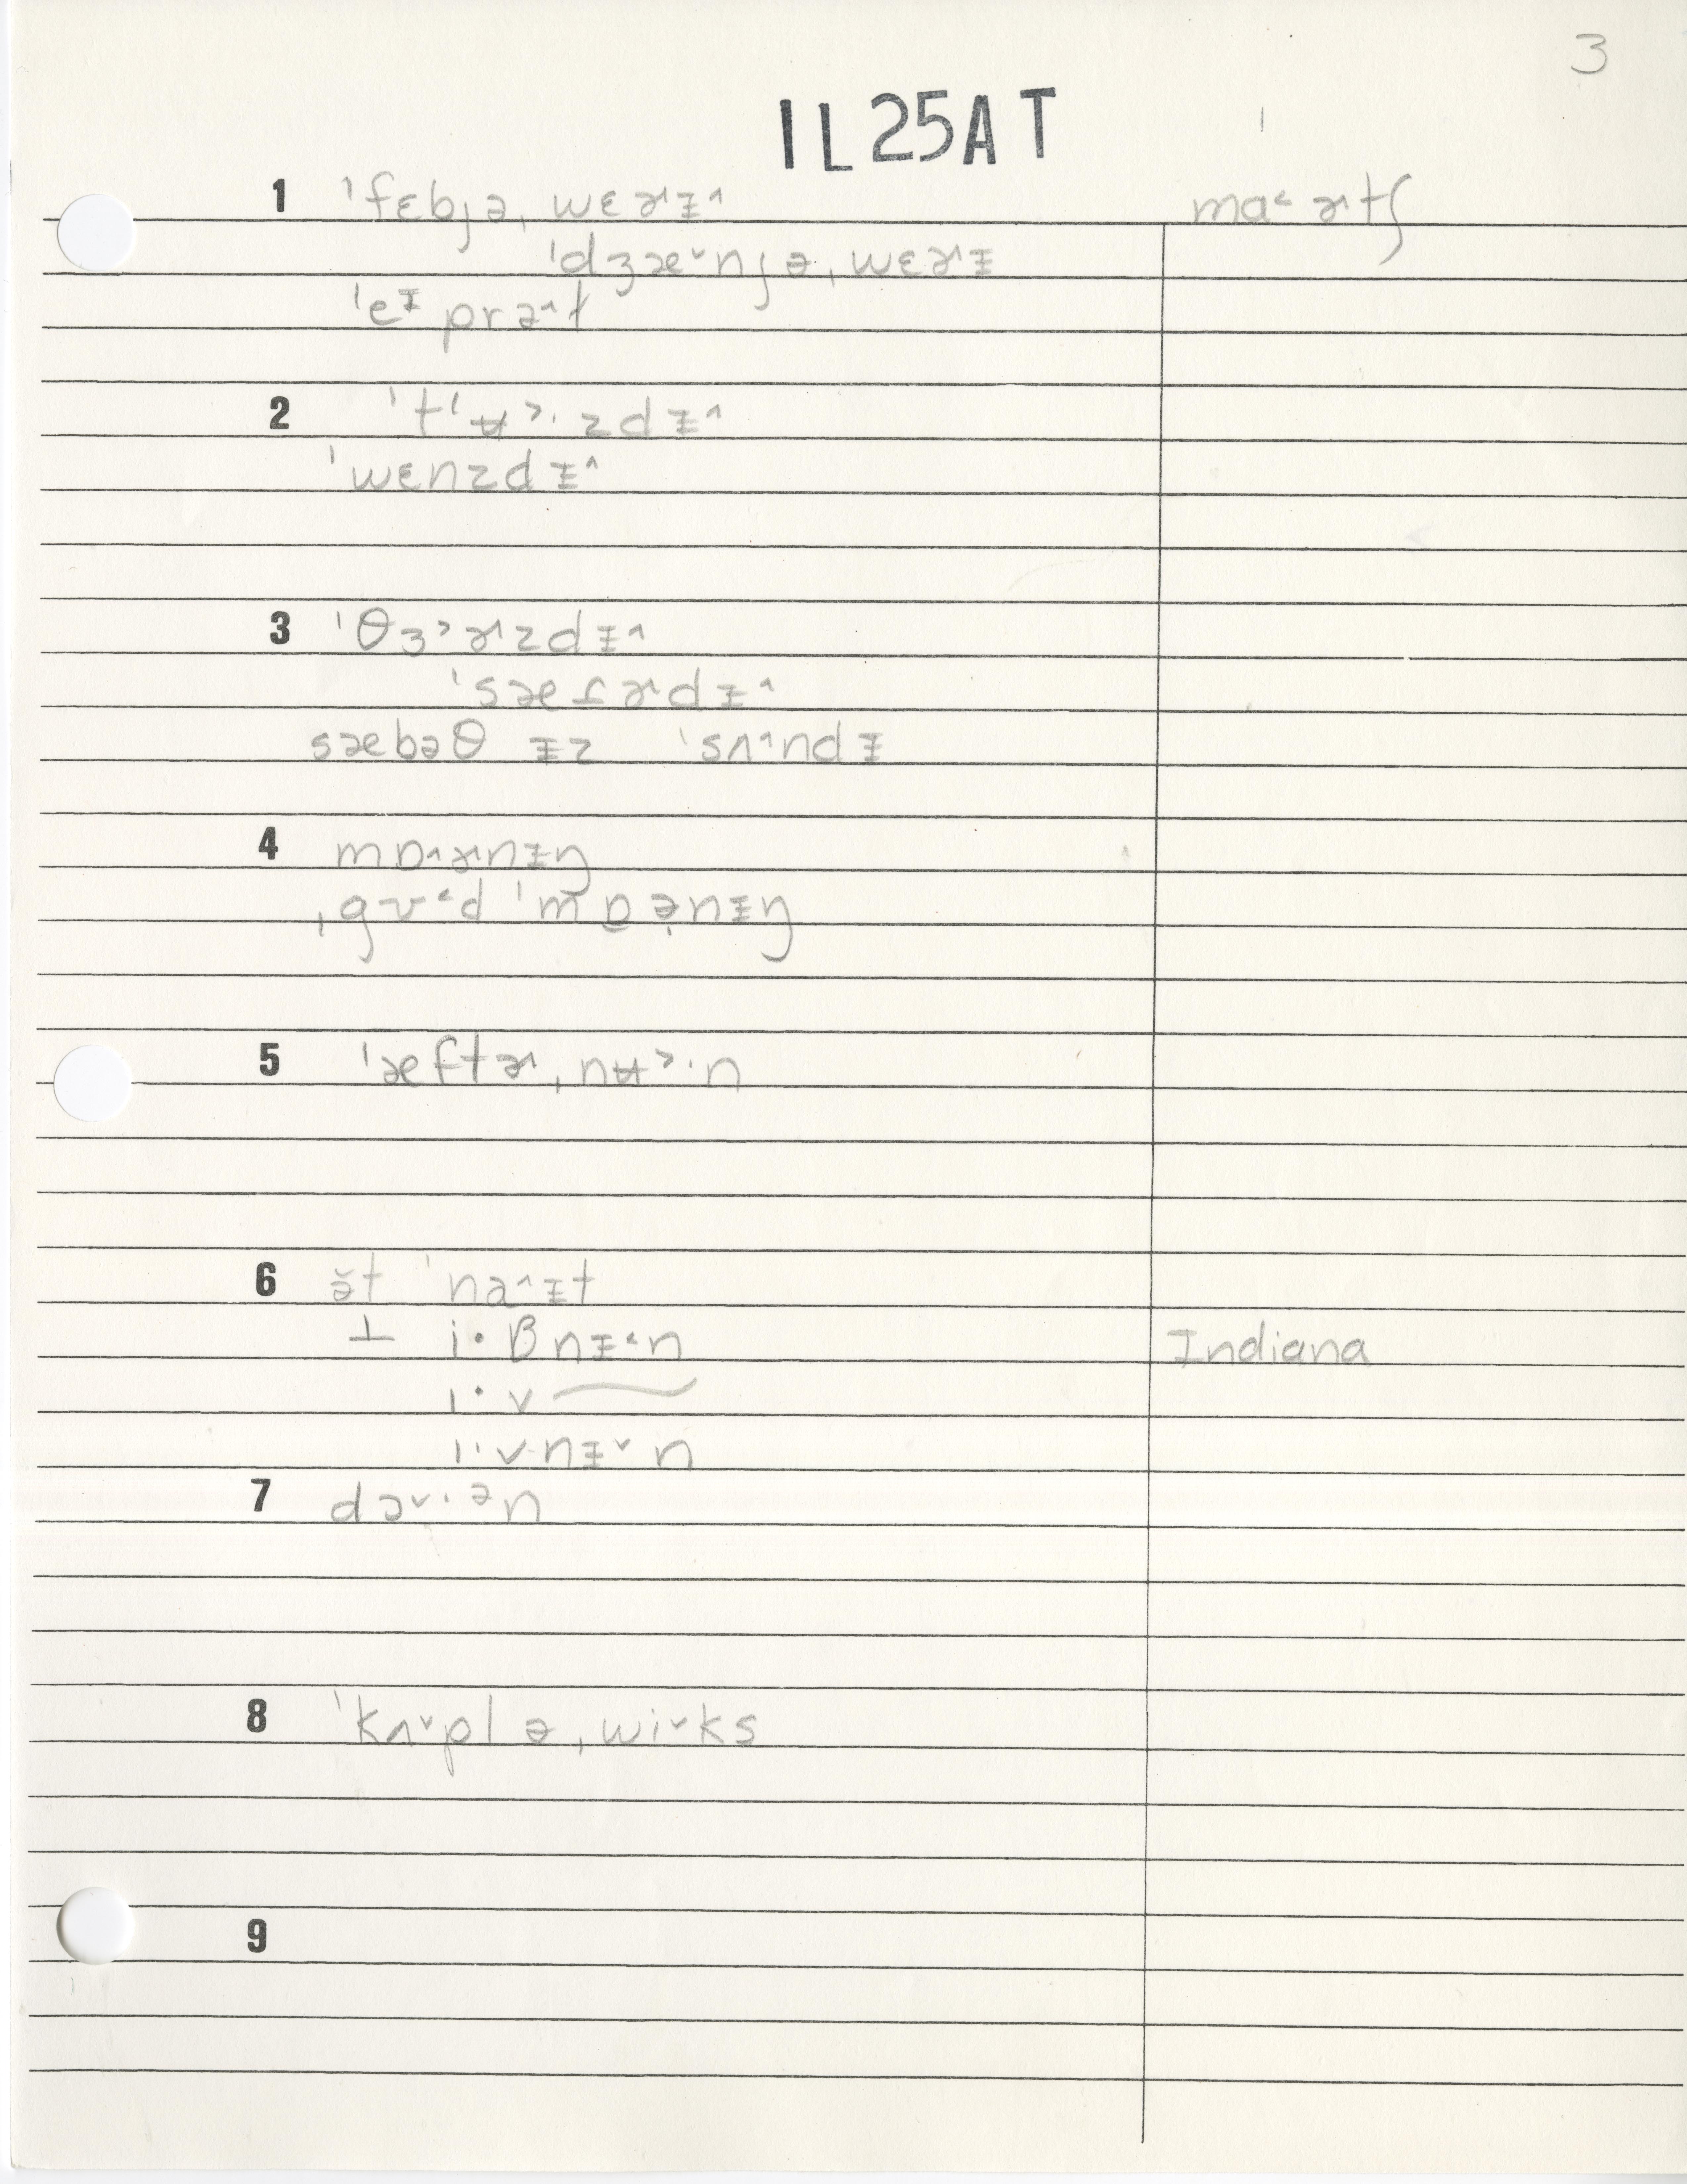 3
IL25AT
1 ˈfɛbjəˌwɛɚɪ̵^ ma˂ɚtʃ
ˈdʒæ˅njəˌwɛɚɪ̵
ˈeɪ̵prə^t
2 ˈt'ʉ˃·zdɪ̵^
ˈwɛnzdɪ̵^
3 ˈθɜ˃ɚzdɪ̵^
ˈsæɾɚdɪ̵^
sæbəθ ɪ̵z ˈsʌ^ndɪ̵
4 mɒ^ɚnɪ̵ŋ
ˌgʊ˂d ˈmɒə̯nɪ̵ŋ
5 ˈæftɚˌnʉ˃·n
6 ə̆t ˈna^ɪ̵t
⊥ i·βnɪ̵˂n Indiana
i·v
i·vnɪ̵˅n
7 dɔ˅·ən
8 ˈkʌ˅pləˌwi˅ks
9